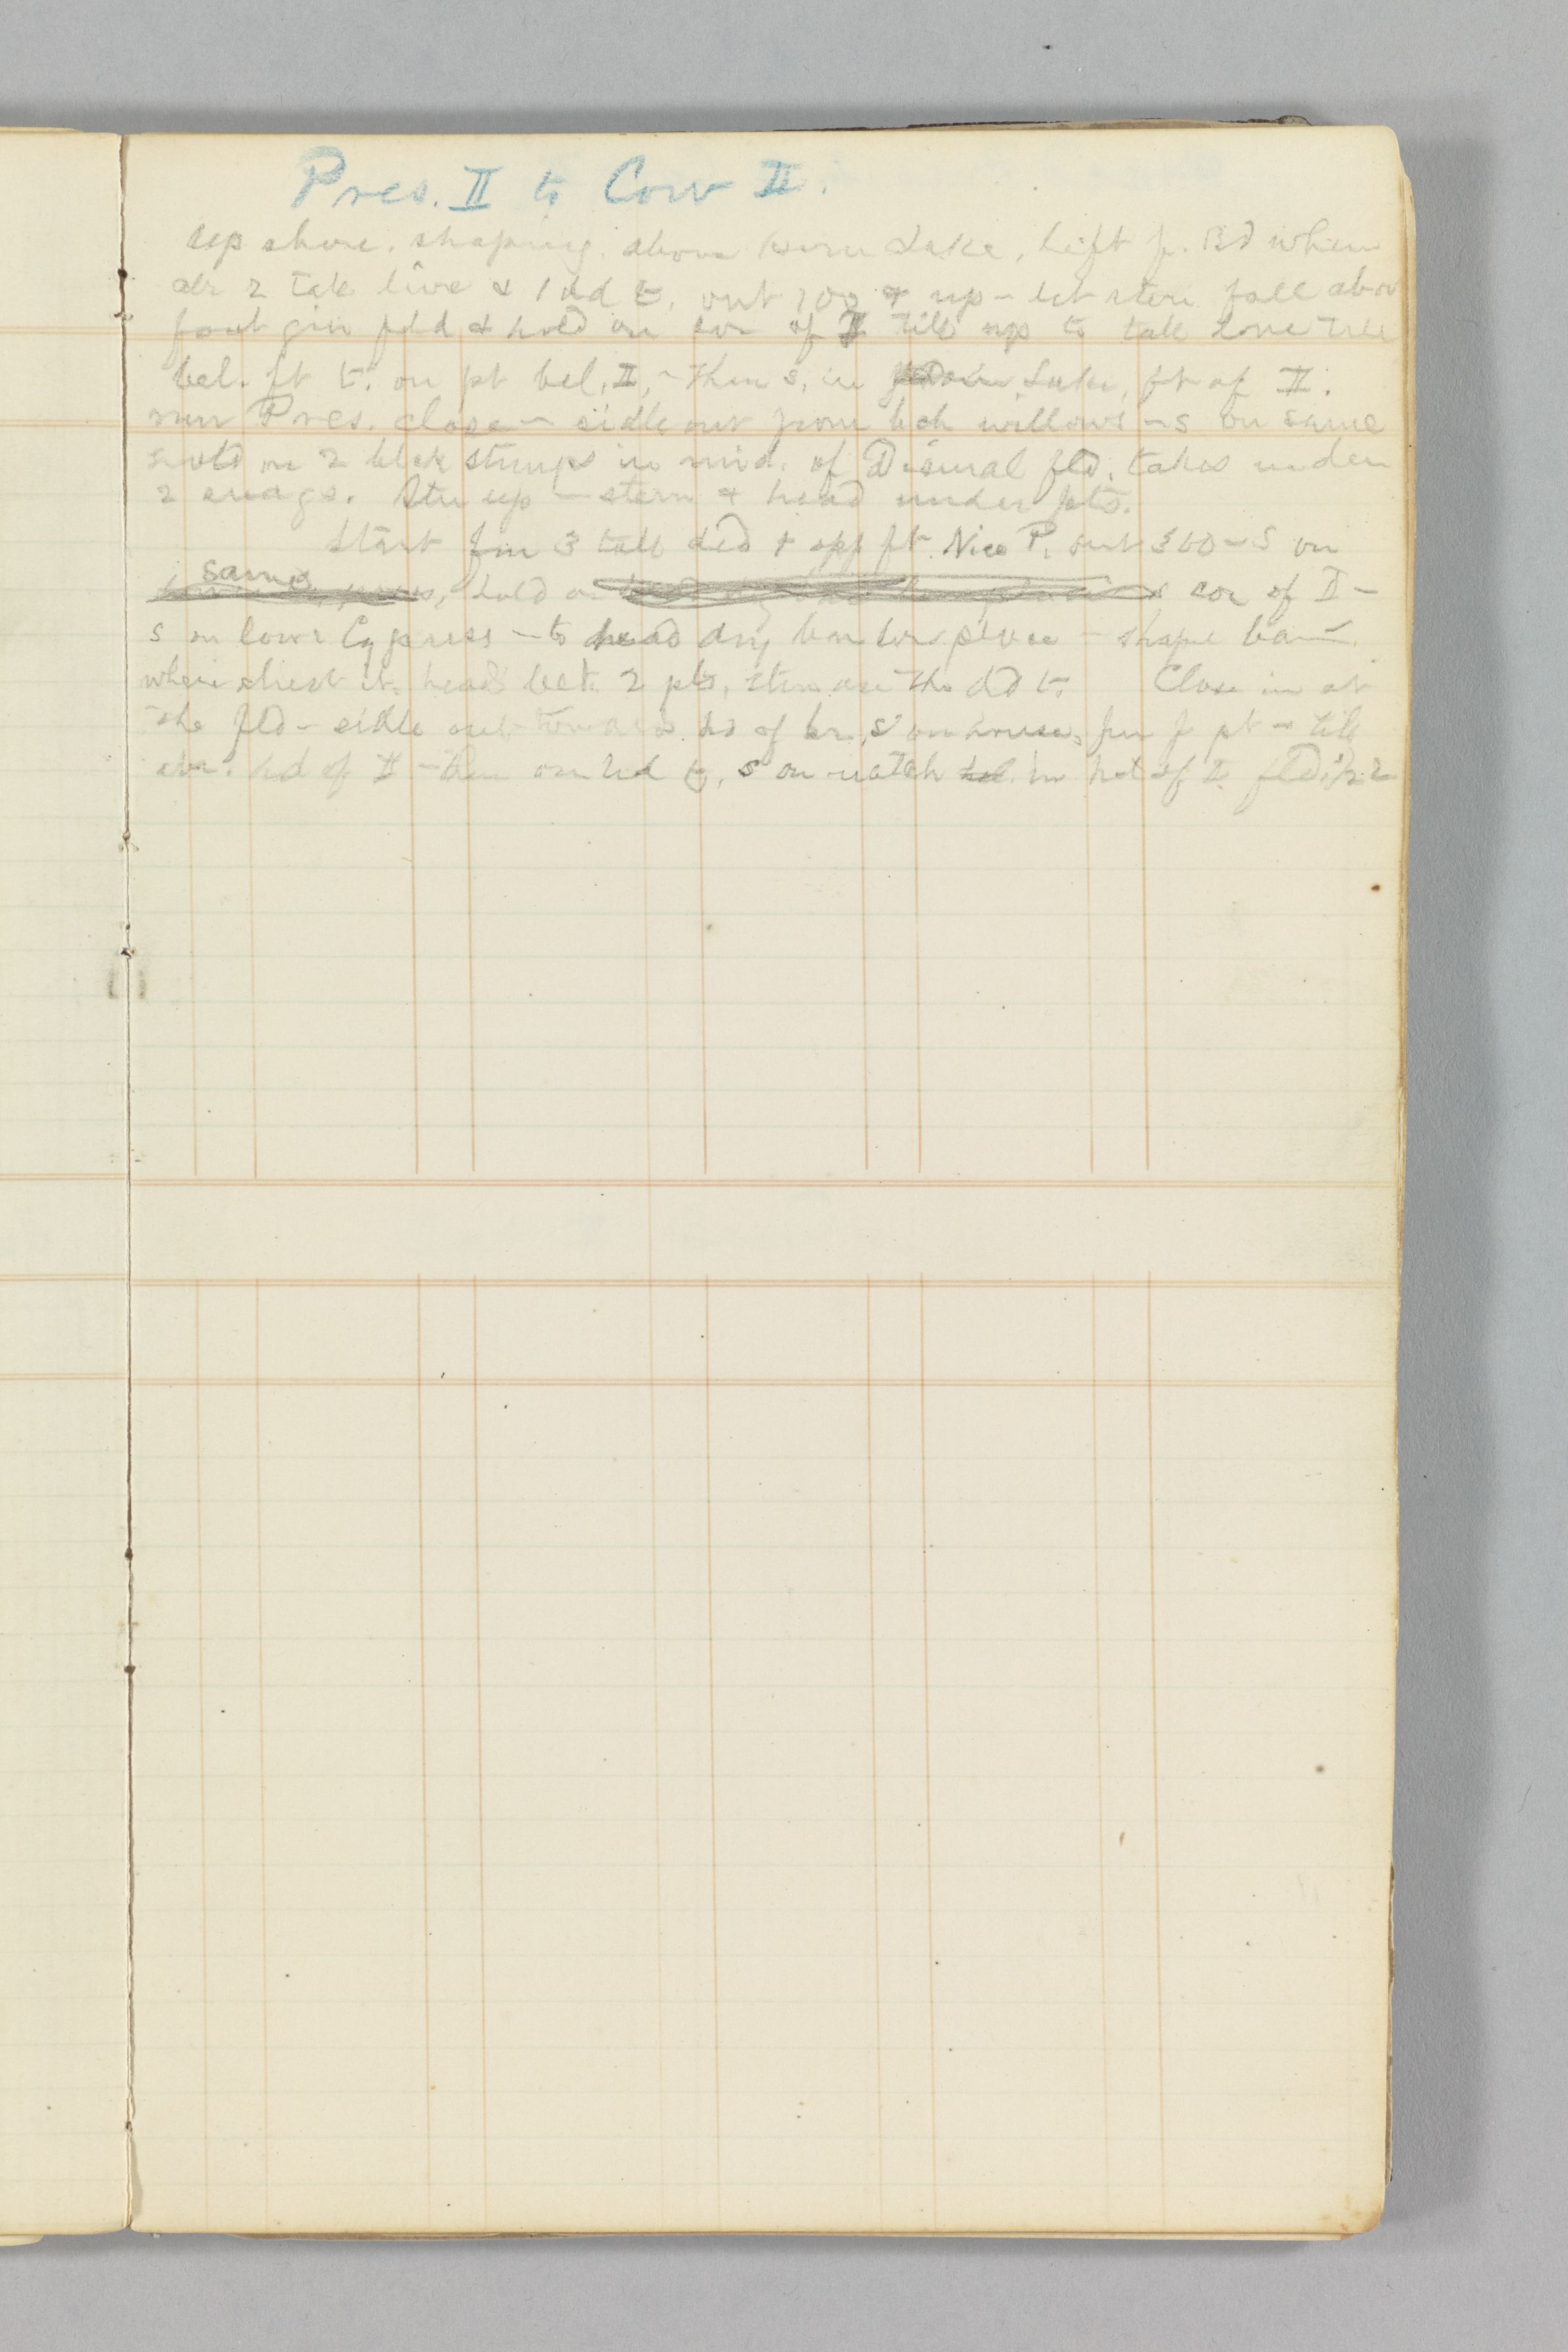 Pres. II to Cow II.
up shore. shaping. above Horn Lake, left p. Bd when
abr 2 tall live & 1 dd t. out 100 & up - let stern fall abov
foot gin fld & hold on cor of II till up to tall Lone Tree
bel. ft t. on pt bel. II, - then s, in Lake, ft of II.
run Pres. close - sidle out from hgh willows - s on same
2 blck stumps in mid. of Dismal fld. takes under
2 snags. Str up - stern & head under pts.
Start fm 3 tall ded t opp ft Nice P. out 300 - S on
same hold on cor of II -
s on lowr Cypress - to head dry bar lowr piece - shape bar
where abrest it. head bet. 2 pts, stern on the dd t. Close in at
the fld - sidle out towards hd of br, s on house, fm f pt - till
abv. hd of II - then on dd t, s on notch in hd of II fld